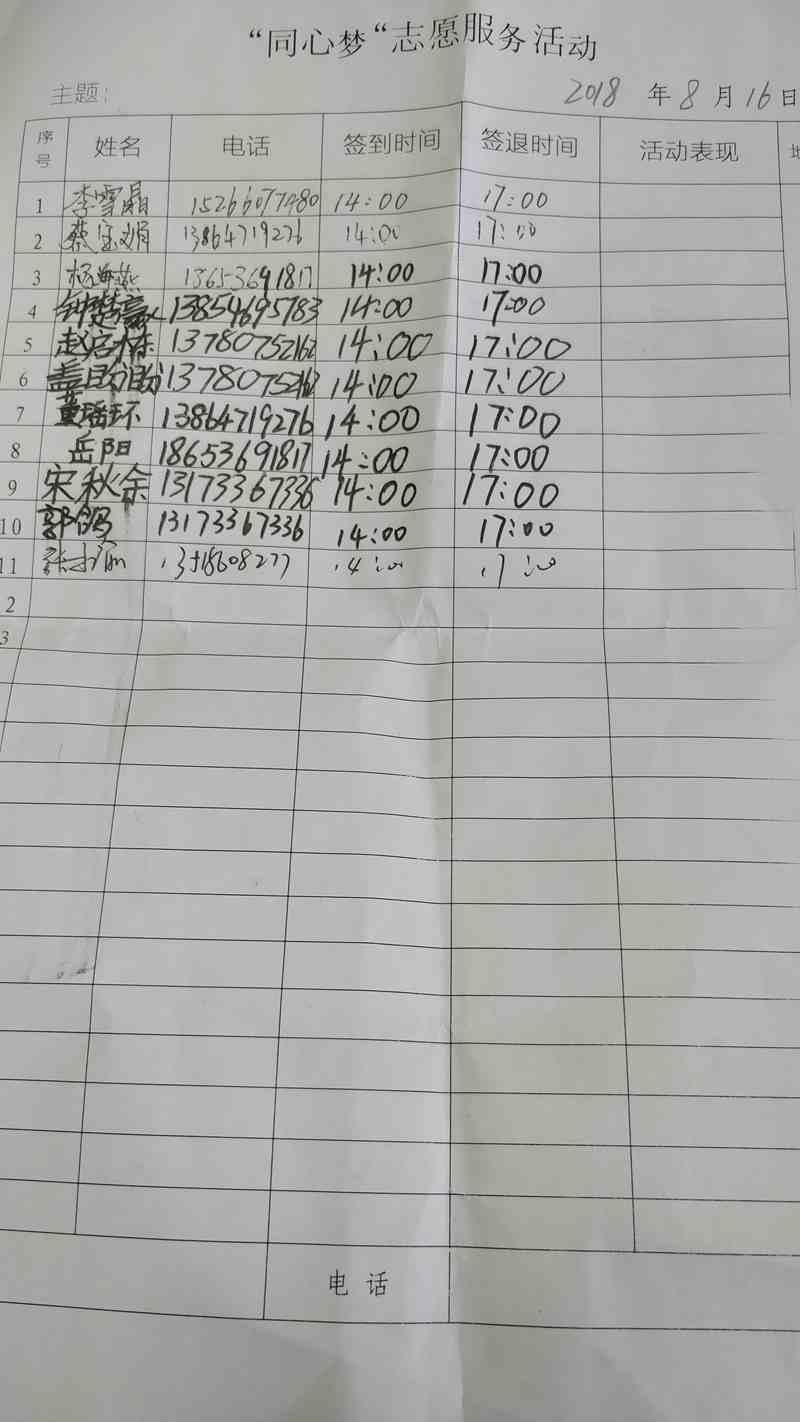 “同心梦“志愿服务活动
主题: 2018 年 8 月 16 日
序号 姓名 电话 签到时间 签退时间 活动表现
1 李雪晶 15266077480 14:00 17:00
2 蔡宝娟 13864719276 14:00 17:00
3 杨海燕 18653691817 14:00 17:00
4 13854695783 14:00 17:00
5 13780752162 14:00 17:00
6 13780752162 14:00 17:00
7 董瑶环 13864719276 14:00 17:00
8 岳阳 18653691817 14:00 17:00
9 宋秋余 13173367336 14:00 17:00
10 郭鸽 13173367336 14:00 17:00
11 14:00 17:00
2
3
电话